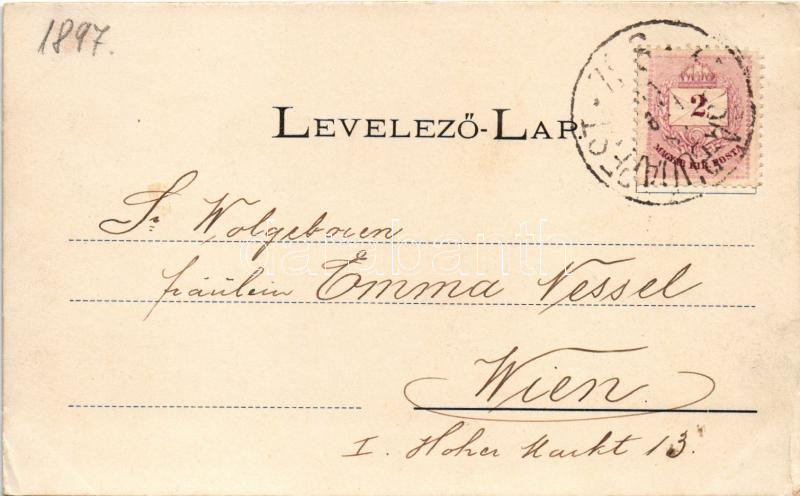 1897.
LEVELEZŐ-LAP
2
MAGYAR KIR. POSTA
BUDAPEST
Sr Wolgeboren
fräulein Emma Nessel
Wien
I. Hoher Markt 13.
darabanth